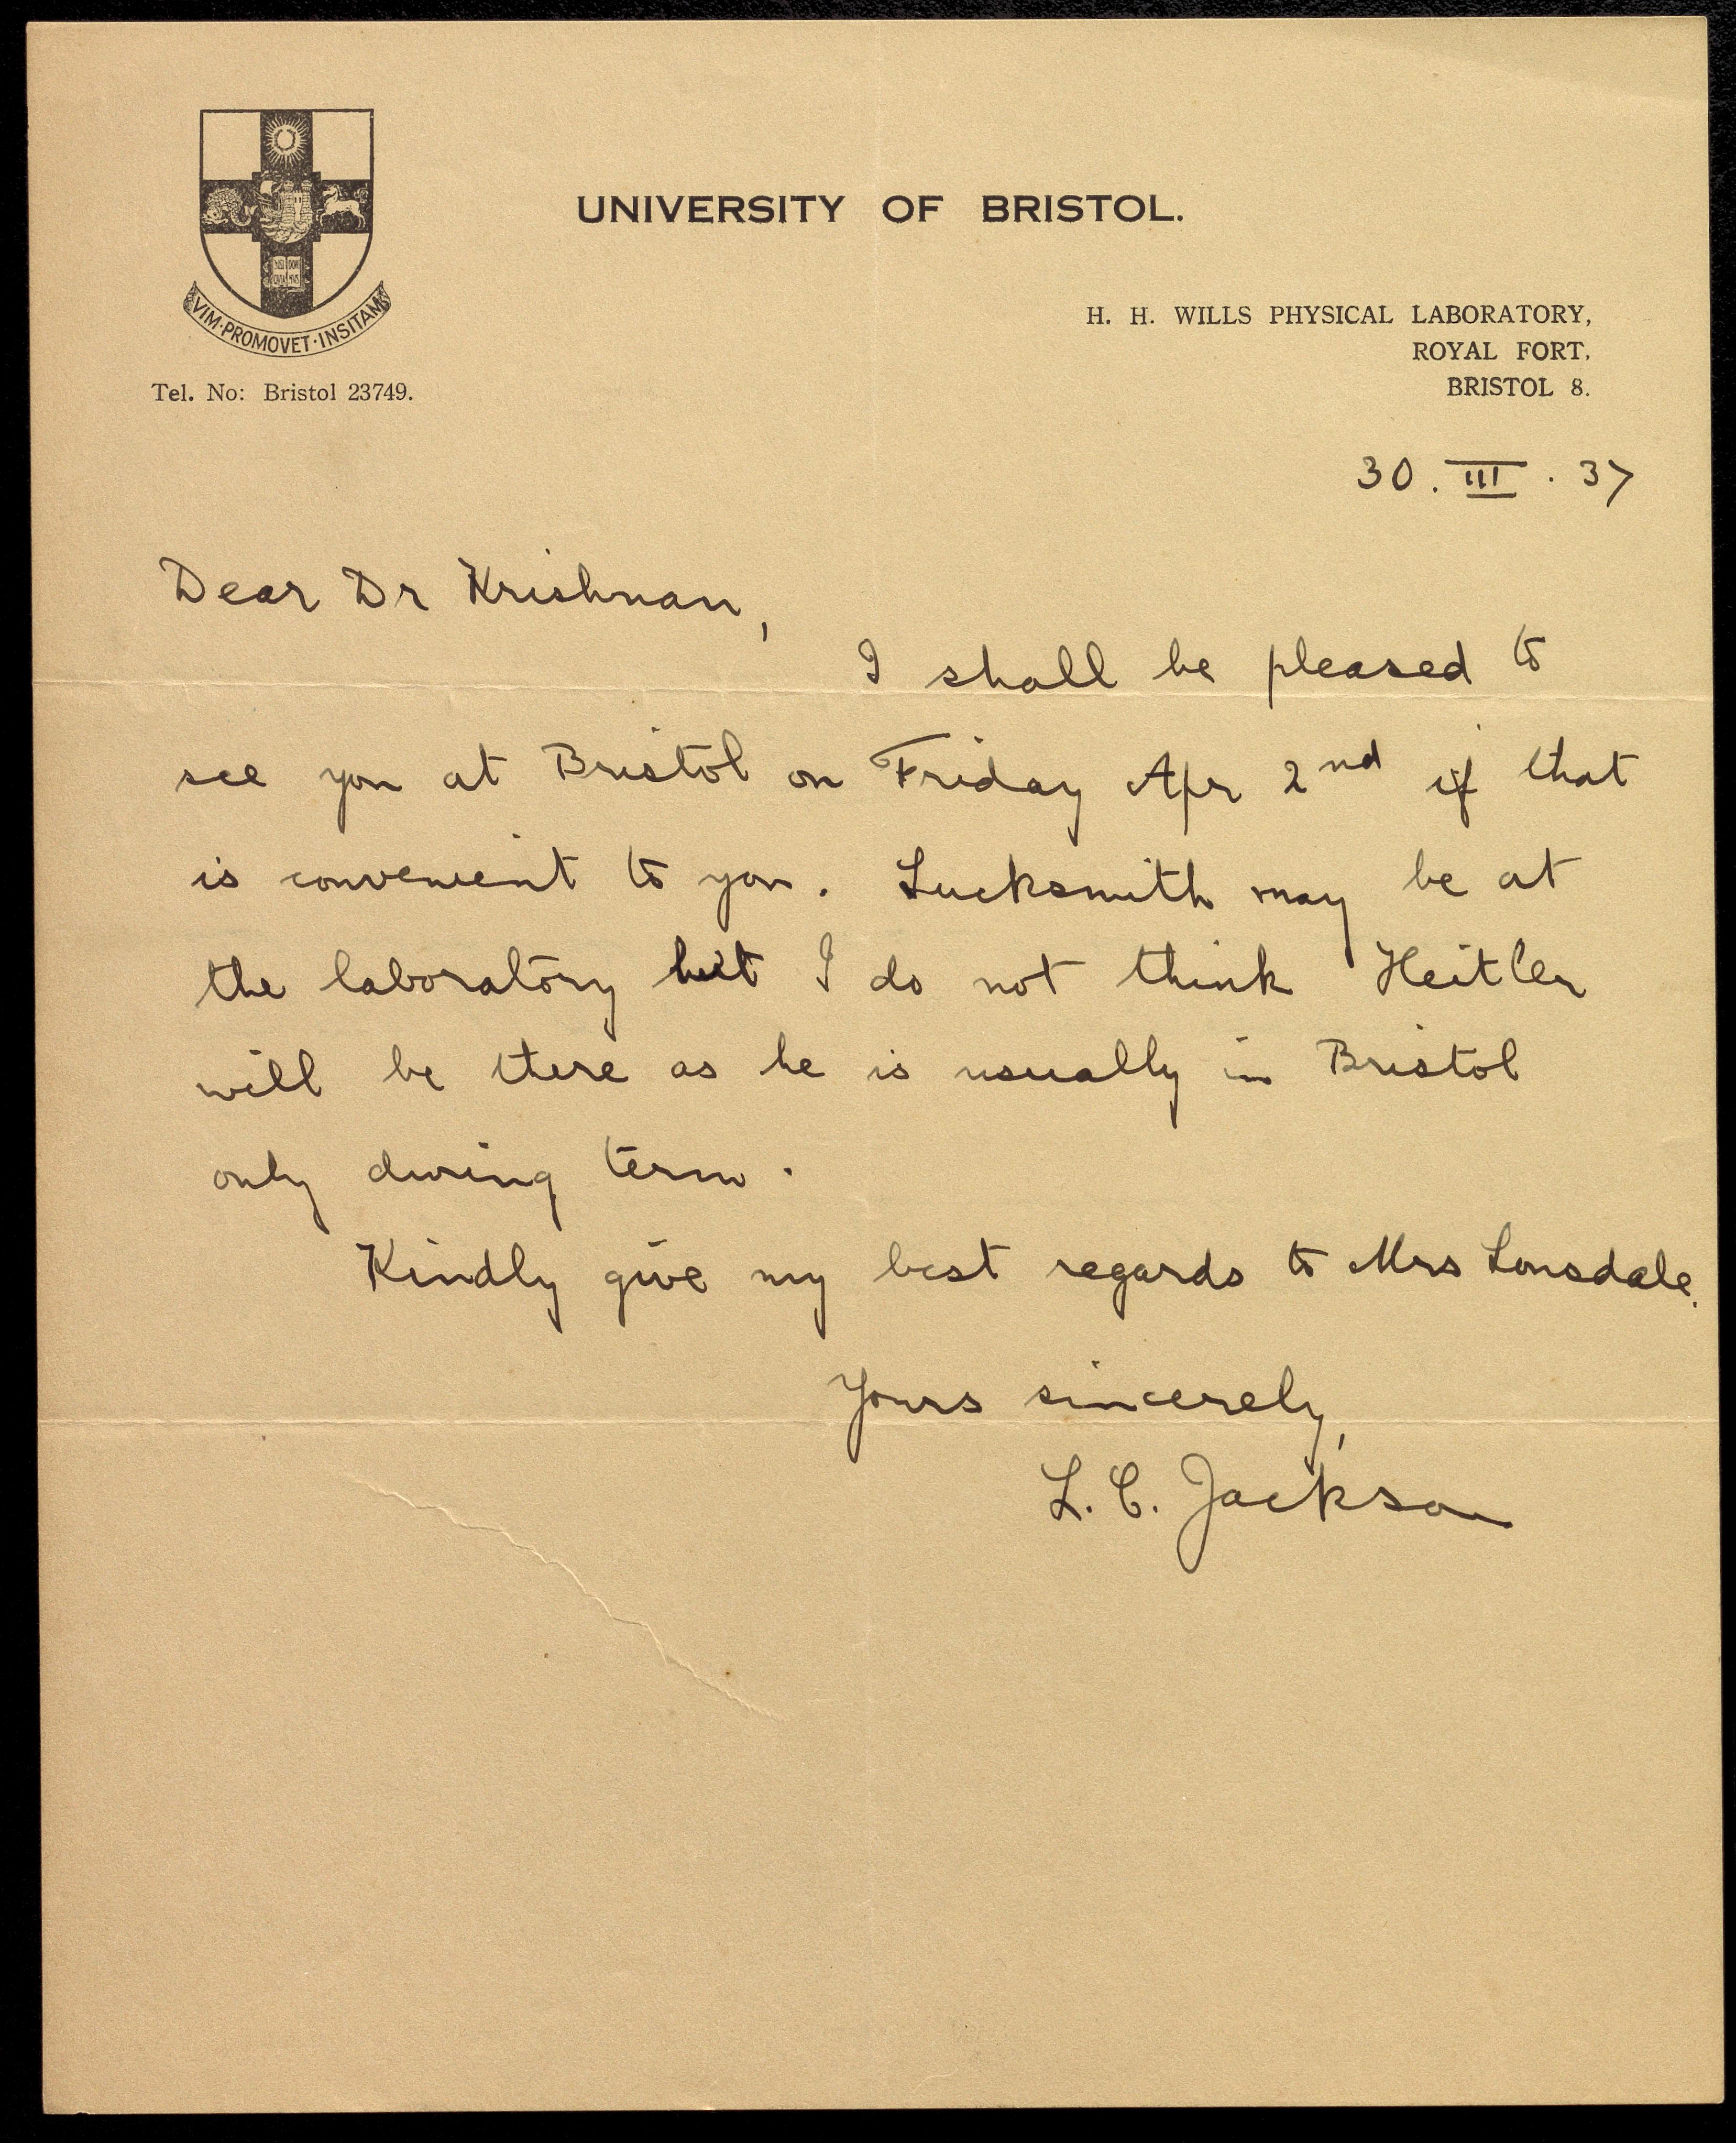 UNIVERSITY OF BRISTOL.
VIM·PROMOVET·INSITAM
Tel. No: Bristol 23749.
H. H. WILLS PHYSICAL LABORATORY,
ROYAL FORT,
BRISTOL 8.
30. III. 37
Dear Dr Krishnan,
I shall be pleased to
see you at Bristol on Friday Apr 2nd if that
is convenient to you. Lucksmith may be at
the laboratory but I do not think Heitler
will be there as he is usually in Bristol
only during term.
Kindly give my best regards to Mrs Lonsdale.
Yours sincerely,
L. C. Jackson